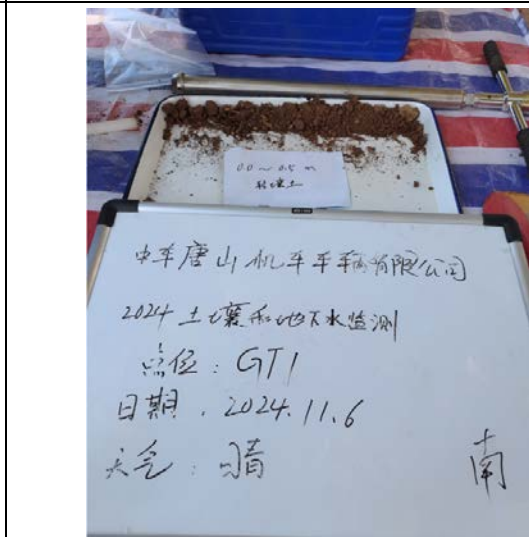 0.0~0.5m
轻壤土
中车唐山机车车辆有限公司
2024土壤和地下水监测
点位：GT1
日期．2024.11.6
天气：晴
南